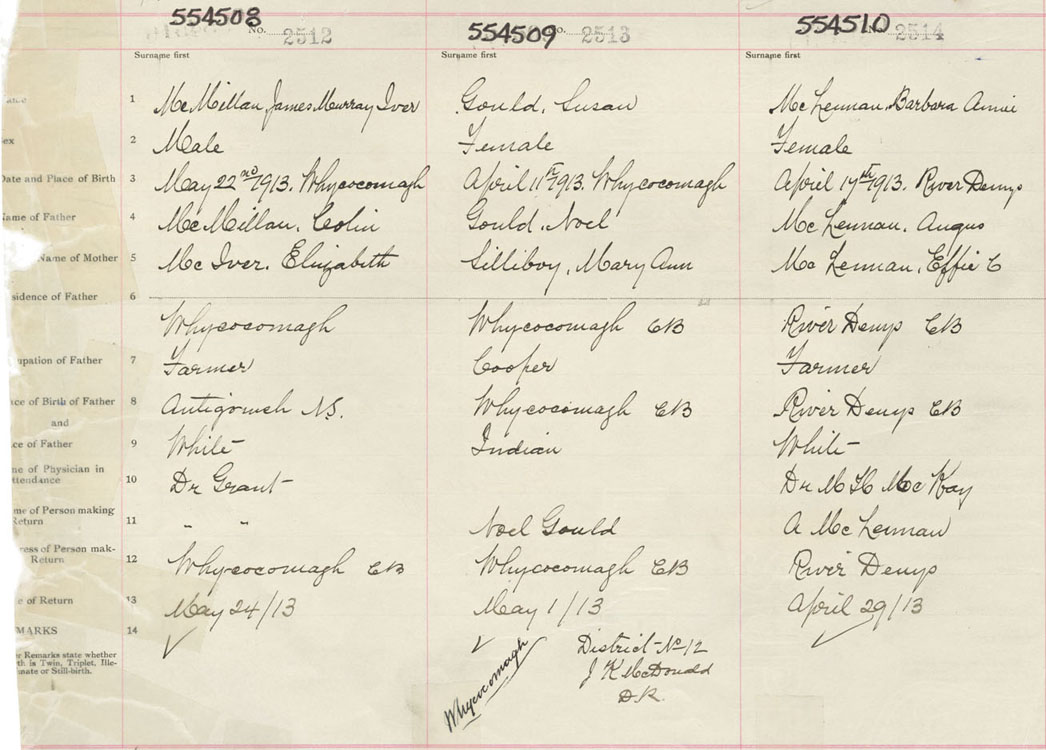 554508 No. 2512 554509 No. 2513 554510 2514
Surname first Surname first Surname first
1 McMillan, James Murray Iver Gould, Susan McLennan, Barbara Annie
ex 2 Male Female Female
Date and Place of Birth 3 May 22nd 1913. Whycocomagh April 11th 1913. Whycocomagh April 17th 1913. River Denys
Name of Father 4 McMillan, Colin Gould, Noel McLennan, Angus
Name of Mother 5 McIver, Elizabeth Silliboy, Mary Ann McLennan, Effie C
sidence of Father 6
Whycocomagh Whycocomagh CB River Denys CB
upation of Father 7 Farmer Cooper Farmer
ce of Birth of Father 8 Antigonish N.S. Whycocomagh CB River Denys CB
and
ce of Father 9 White Indian White
ne of Physician in
ttendance 10 Dr Grant Dr M H McKay
me of Person making
Return 11 " " Noel Gould A McLennan
ress of Person mak-
Return 12 Whycocomagh CB Whycocomagh CB River Denys
e of Return 13 May 24/13 May 1/13 April 29/13
MARKS 14
er Remarks state whether
th is Twin, Triplet, Ille-
mate or Still-birth.
Whycocomagh
District No 12
J K McDonald
D.R.